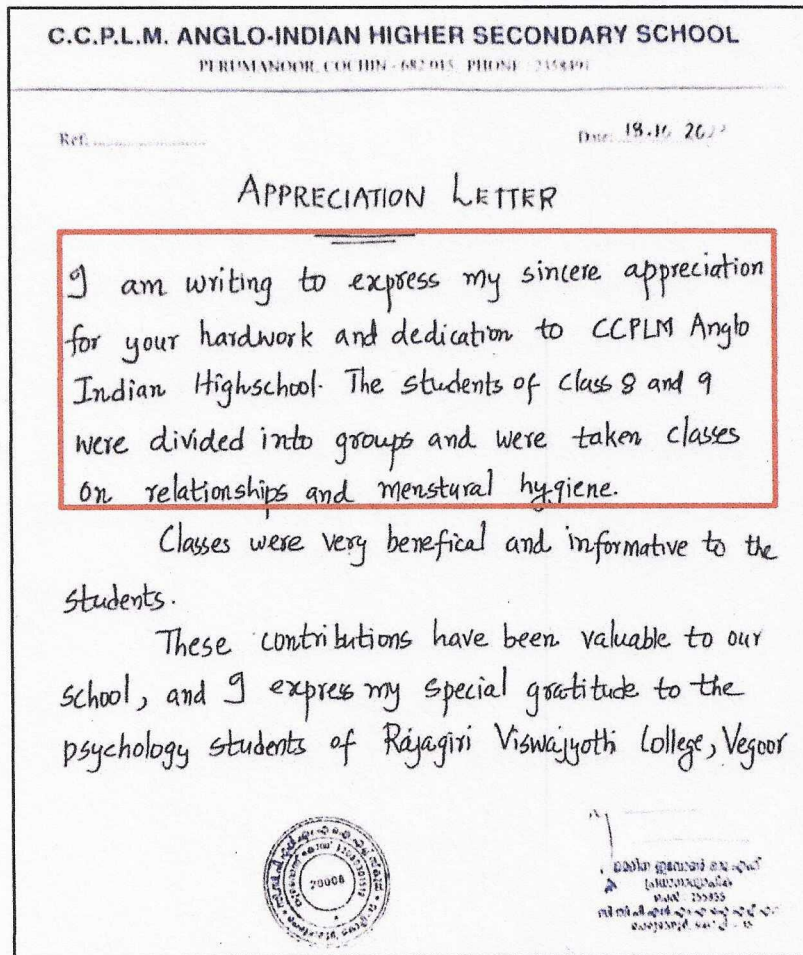 C.C.P.L.M. ANGLO-INDIAN HIGHER SECONDARY SCHOOL
PERUMANOOR, COCHIN - 682 015, PHONE
Ref:
Date: 18.10
APPRECIATION LETTER
I am writing to express my sincere appreciation
for your hardwork and dedication to CCPLM Anglo
Indian Highschool. The students of class 8 and 9
were divided into groups and were taken classes
on relationships and menstural hygiene.
Classes were very benefical and informative to the
students.
These contributions have been valuable to our
school, and I express my special gratitude to the
psychology students of Rajagiri Viswajyothi College, Vegoor
20008